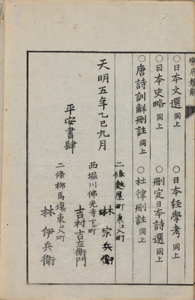 ○日本文選 同上
○日本経學考 同上
○日本史略 同上
○刪定日本詩選 同上
○唐詩訓解刪註 同上
○杜律刪註 同上
天明五年乙巳九月
平安書肆
林 宗兵衛
西堀川佛光寺下町
吉村吉左衛門
二條柳馬場東入町
林 伊兵衛